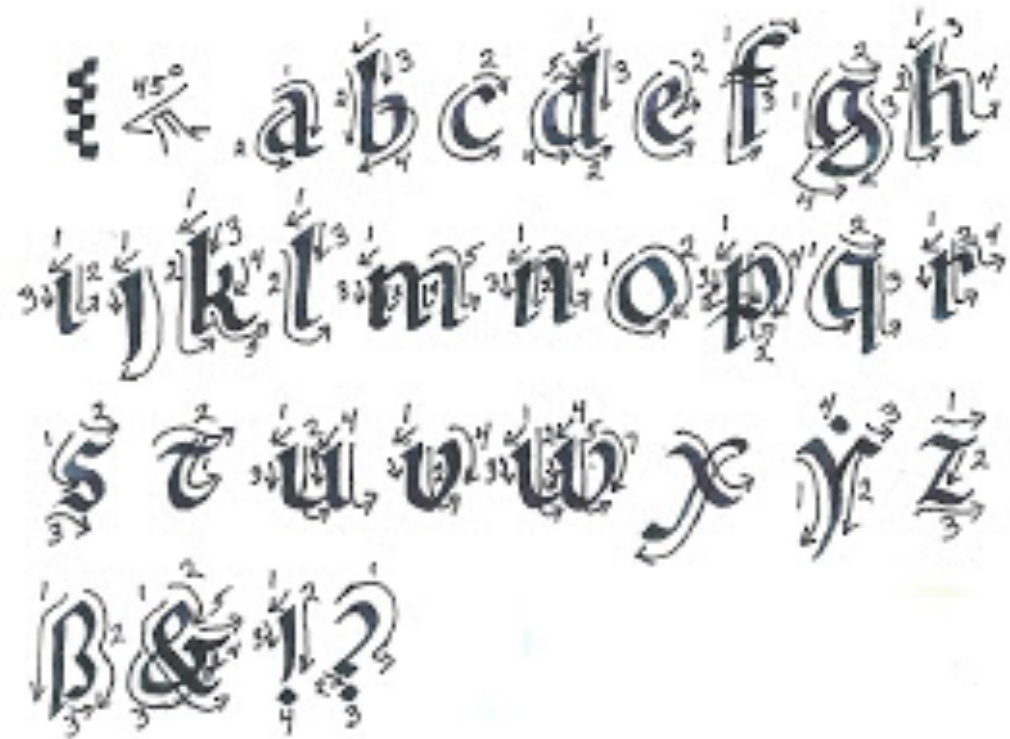 45° a b c d e f g h
i j k l m n o p q r
s t u v w x ẏ z
ß & ! ?